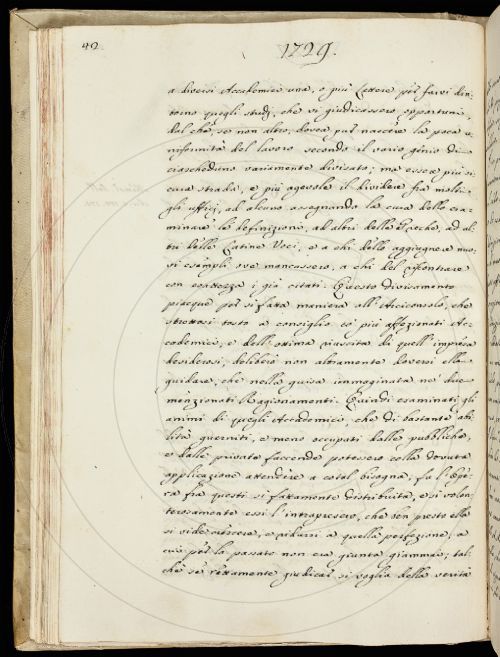 42
1729.
a diversi Accademici una, o più Lettere pe'l farvi din-
torno quegli studj, che vi giudicassero opportuni,
dal che, se non altro, dovea pur nascere la poca u-
niformità del lavoro secondo il vario genio di
ciascheduno variamente divisato; ma essere più si-
cura strada, e più agevole il dividere fra molti
gli uffici, ad alcuno assegnando la cura dello esa-
minare le definizioni, ad altri delle Greche, ad al-
tri delle Latine Voci, e a chi dello aggiugnere nuo-
vi esempli ove mancassero, a chi del riscontrare
con esattezza i già citati. Questo divisamento
piacque per sì fatta maniera all'Arciconsolo, che
strettosi tosto a consiglio co' più affezionati Ac-
cademici, e dell'ottima riuscita di quell'impresa
desiderosi, deliberò non altramente doversi ella
guidare, che nella guisa immaginata ne' due
menzionati Ragionamenti. Quindi esaminati gli
animi di quegli Accademici, che di bastante abi-
lità guerniti, e meno occupati dalle pubbliche,
e dalle private faccende potessero colla dovuta
applicazione attendere a cotal bisogna, fu l'Ope-
ra fra questi sì fattamente distribuita, e sì volen-
terosamente essi l'intrapresero, che ben presto ella
si vide crescere, e ridursi a quella perfezione, a
cui per lo passato non era giunta giammai; tal-
chè se rettamente giudicar si voglia della verità